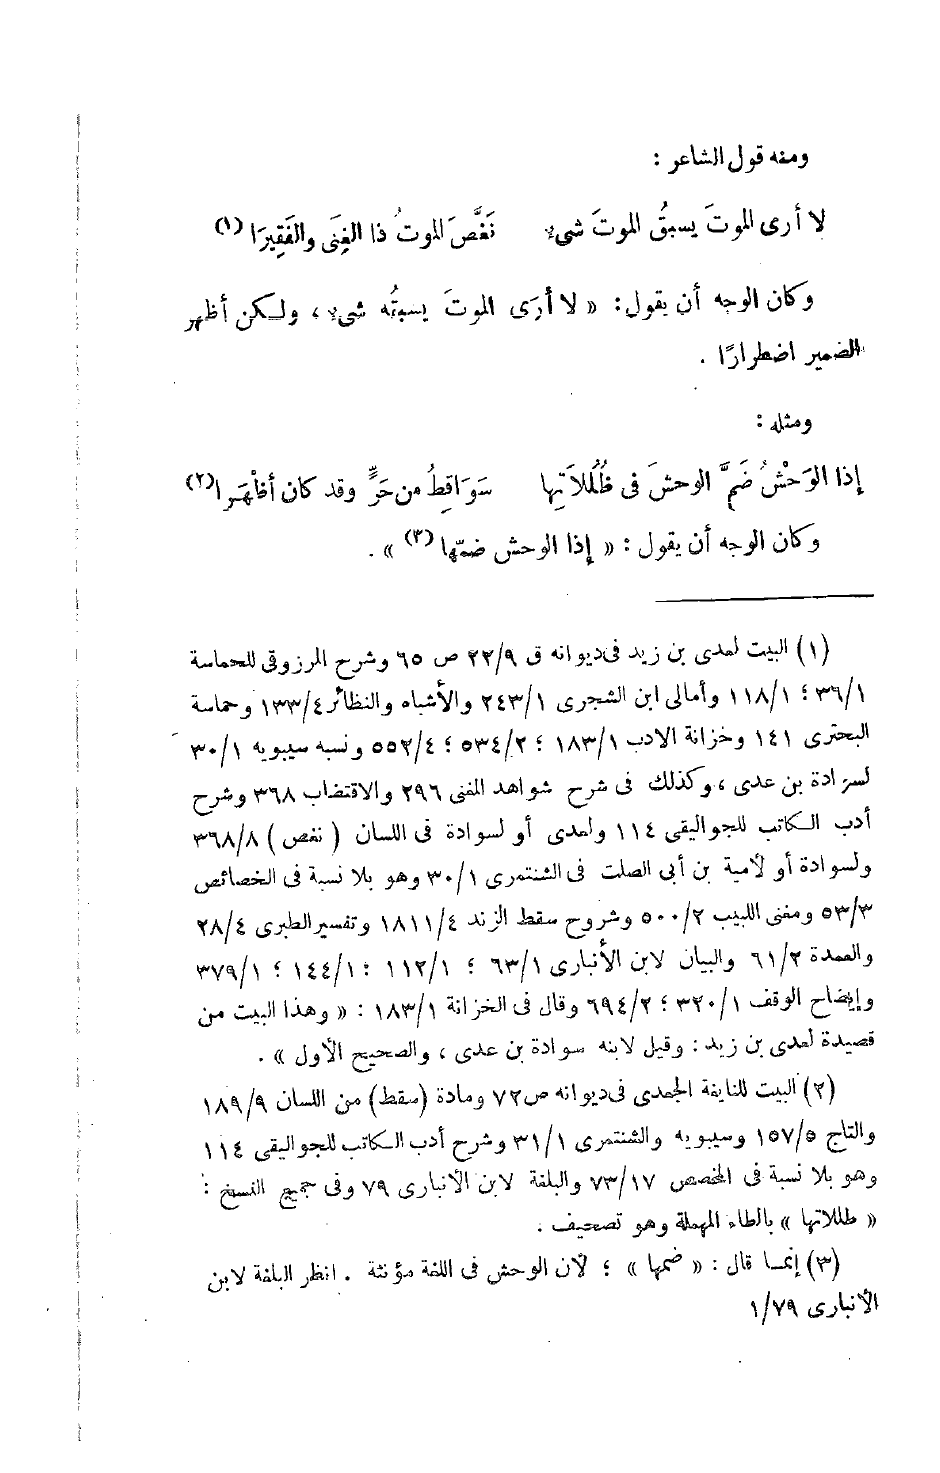 ومنه قول الشاعر :
لا أرى الموتَ يسبقُ الموتَ شىء نَغَّصَ الموتُ ذا الغِنَى والفَقِيرَا (١)
وكان الوجه أن يقول : « لا أرَى الموتَ يسبقُه شىء ، ولكن أظهر
الضمير اضطرارًا .
ومثله :
إذا الوَحْشُ ضَمَّ الوحشَ فى ظُلُلاَتِها سَوَاقِطُ من حَرٍّ وقد كان أظْهَرا (٢)
وكان الوجه أن يقول : « إذا الوحش ضمّها (٣) » .
(١) البيت لعدى بن زيد فى ديوانه ق ٢٢/٩ ص ٦٥ وشرح المرزوقى للحماسة
٣٦/١ ؛ ١١٨/١ وأمالى ابن الشجرى ٢٤٣/١ والأشباه والنظائر ١٣٣/٤ وحماسة
البحترى ١٤١ وخزانة الادب ١٨٣/١ ؛ ٥٣٤/٢ ؛ ٥٥٢/٤ ونسبه سيبويه ٣٠/١
لسرادة بن عدى ، وكذلك فى شرح شواهد المغنى ٢٩٦ والاقتضاب ٣٦٨ وشرح
أدب الكاتب للجواليقى ١١٤ ولعدى أو لسوادة فى اللسان ( نغص ) ٣٦٨/٨
ولسوادة أو لأمية بن أبى الصلت فى الشنتمرى ٣٠/١ وهو بلا نسبة فى الخصائص
٥٣/٣ ومغنى اللبيب ٥٠٠/٢ وشروح سقط الزند ١٨١١/٤ وتفسير الطبرى ٢٨/٤
والعمدة ٦١/٢ والبيان لابن الأنبارى ٦٣/١ ؛ ١١٢/١ ؛ ١٤٤/١ ؛ ٣٧٩/١
وإيضاح الوقف ٣٢٠/١ ؛ ٦٩٤/٢ وقال فى الخزانة ١٨٣/١ : « وهذا البيت من
قصيدة لعدى بن زيد : وقيل لابنه سوادة بن عدى ، والصحيح الأول » .
(٢) البيت للنابغة الجعدى فى ديوانه ص ٧٢ ومادة (سقط) من اللسان ١٨٩/٩
والتاج ١٥٧/٥ وسيبويه والشنتمرى ٣١/١ وشرح أدب الكاتب للجواليقى ١١٤
وهو بلا نسبة فى المخصص ٧٣/١٧ والبلغة لابن الأنبارى ٧٩ وفى جميع النسخ :
« طللاتها » بالطاء المهملة وهو تصحيف .
(٣) إنما قال : « ضمها » ؛ لأن الوحش فى اللغة مؤنثة . انظر البلغة لابن
الأنبارى ١/٧٩